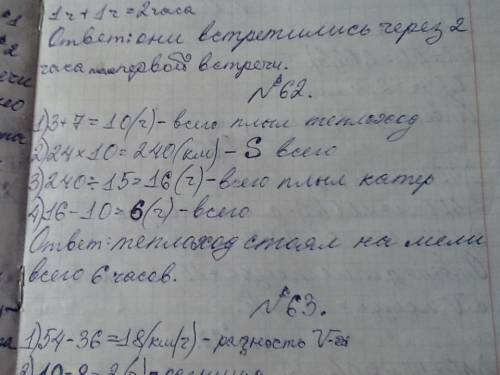 1ч + 1ч = 2 часа
Ответ: они встретились через 2
часа первой встречи.
№62.
1) 3+7=10(ч)- всего плыл теплоход
2) 24×10=240(км) – S всего
3) 240÷15=16(ч)-всего плыл катер
4) 16-10=6(ч)-всего
Ответ: теплоход стоял на мели
всего 6 часов.
№63.
1) 54-36=18(км/ч)- разность V-ей